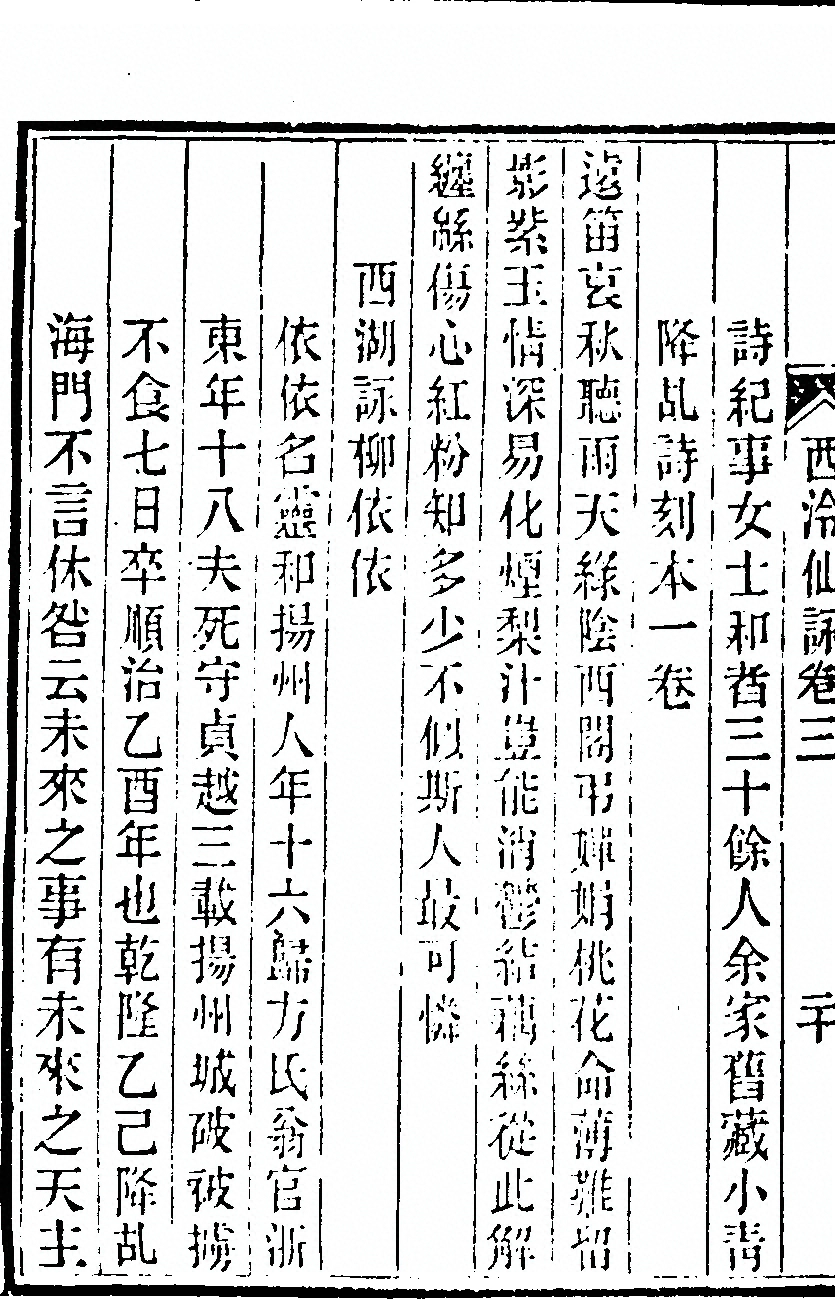 西泠仙詠卷三 二十
詩紀事女士和者三十餘人余家舊藏小青
降乩詩刻本一卷
遠笛哀秋聽雨天綠陰西閣弔嬋娟桃花命薄難留
影紫玉情深易化煙梨汁豈能消鬱結藕絲從此解
纏綿傷心紅粉知多少不似斯人最可憐
西湖詠柳依依
依依名靈和揚州人年十六歸方氏翁官浙
東年十八夫死守貞越三載揚州城破被擄
不食七日卒順治乙酉年也乾隆乙己降乩
海門不言休咎云未來之事有未來之天主